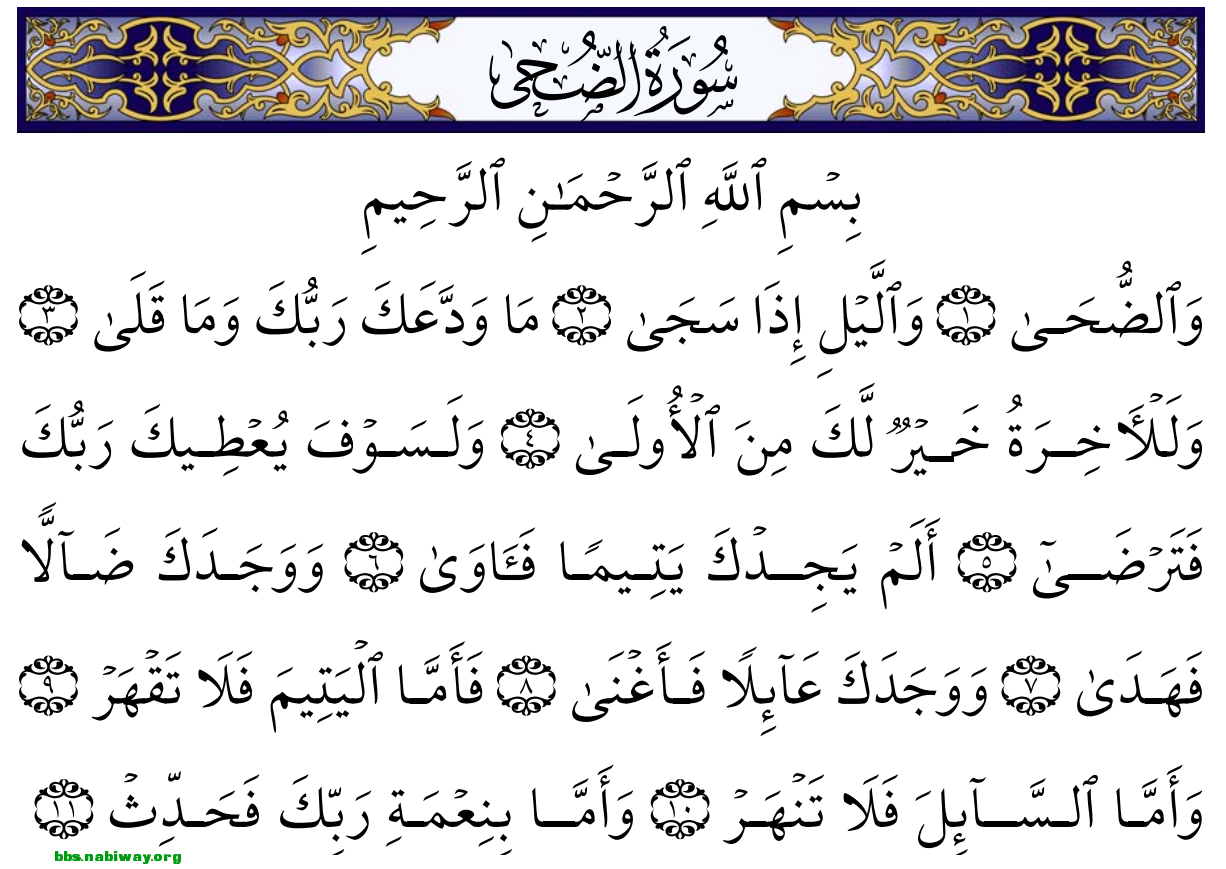 سُورَةُ الضُّحَىٰ
بِسْمِ ٱللَّهِ ٱلرَّحْمَـٰنِ ٱلرَّحِيمِ
وَٱلضُّحَـىٰ ١ وَٱلَّيْلِ إِذَا سَجَىٰ ٢ مَا وَدَّعَكَ رَبُّكَ وَمَا قَلَىٰ ٣
وَلَلْأَخِـرَةُ خَـيْرٌ لَّكَ مِنَ ٱلْأُولَـىٰ ٤ وَلَـسَـوْفَ يُعْطِـيكَ رَبُّكَ
فَتَرْضَــىٰٓ ٥ أَلَمْ يَجِــدْكَ يَتِـيمًـا فَـَٔاوَىٰ ٦ وَوَجَـدَكَ ضَـآلًّا
فَهَـدَىٰ ٧ وَوَجَدَكَ عَآئِلًا فَـأَغْنَىٰ ٨ فَأَمَّـا ٱلْيَتِيمَ فَلَا تَقْهَرْ ٩
وَأَمَّـا ٱلـسَّــآئِلَ فَلَا تَنْهَـرْ ١٠ وَأَمَّــا بِنِعْمَـةِ رَبِّكَ فَحَـدِّثْ ١١
bbs.nabiway.org